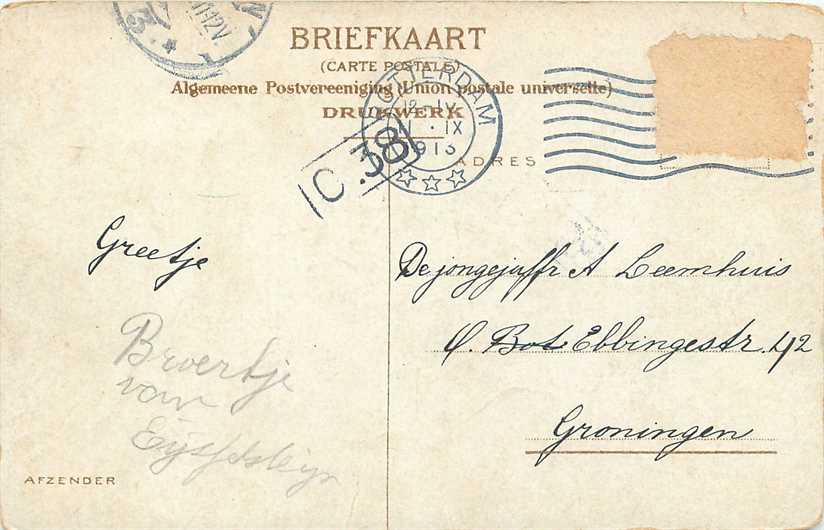 BRIEFKAART
(CARTE POSTALE)
Algemeene Postvereeniging (Union postale universelle)
DRUKWERK
ROTTERDAM
12-1V
1 · IX
1913
C 38
ADRES
Greetje
De jongejuffr A Leemhuis
O. Bot Ebbingestr. 42
Groningen
Broertje
van
AFZENDER